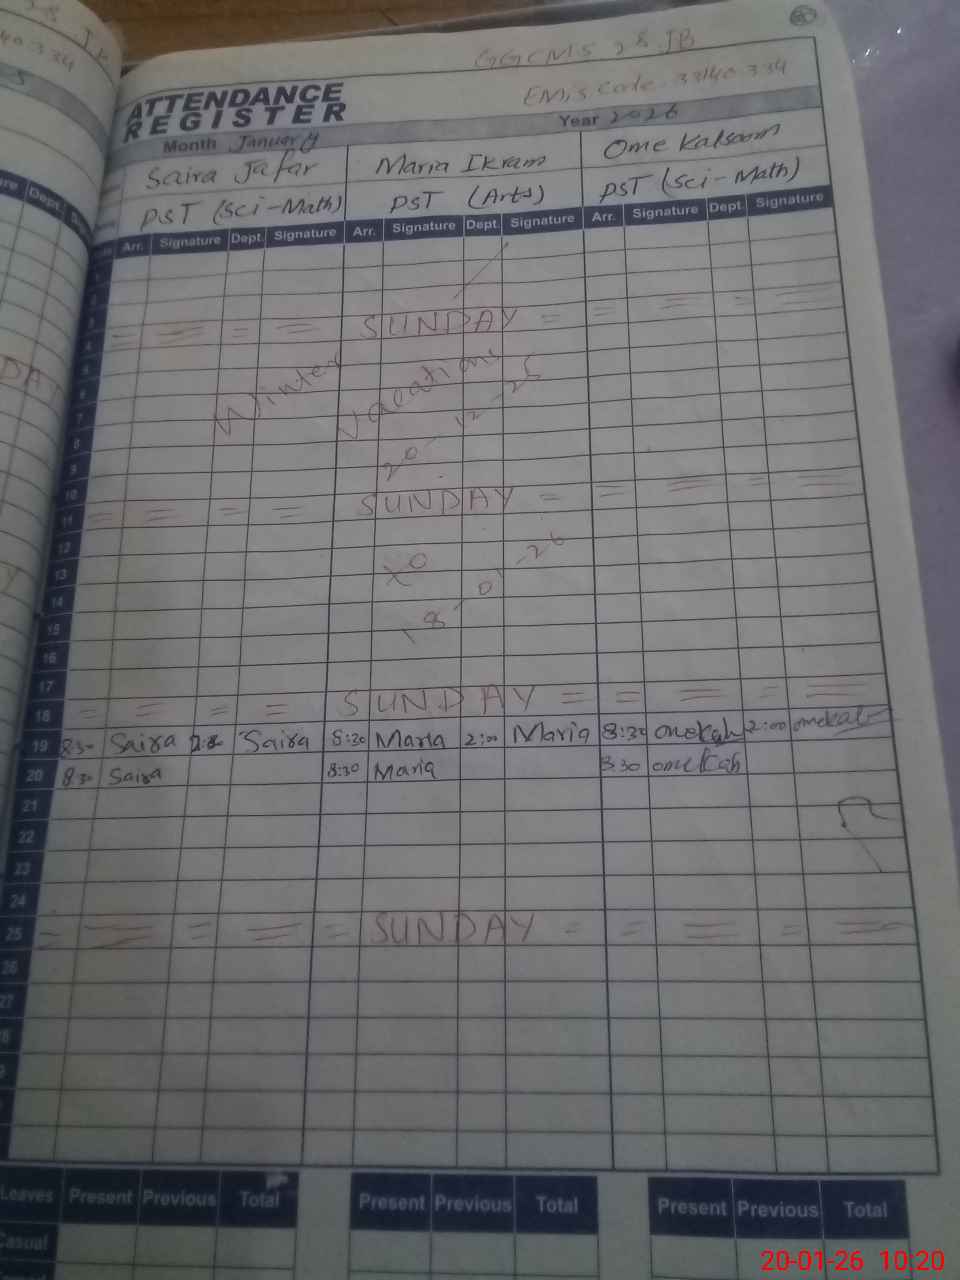 GGCMS 28 JB
EMIS Code 33140334
ATTENDANCE
REGISTER
Month January Year 2026
Saira Jafar Maria Ikram Ome Kalsoom
PST (Sci-Math) PST (Arts) PST (Sci-Math)
Arr. Signature Dept. Signature Arr. Signature Dept. Signature Arr. Signature Dept. Signature
1
2
3
4 = = = = SUNDAY = = = = =
5
6 Winter Vacations
7
8 20-12-25
9
10
11 = = = = SUNDAY = = = = =
12
13 to
14
15 18-01-26
16
17
18 = = = = SUNDAY = = = = =
19 8:30 Saira 2:00 Saira 8:30 Maria 2:00 Maria 8:30 omekah 2:00 omekal
20 8:30 Saira 8:30 Maria 8:30 omekah
21
22
23
24
25 = = = = = SUNDAY = = = = =
26
27
Leaves Present Previous Total Present Previous Total Present Previous Total
Casual
20-01-26 10:20